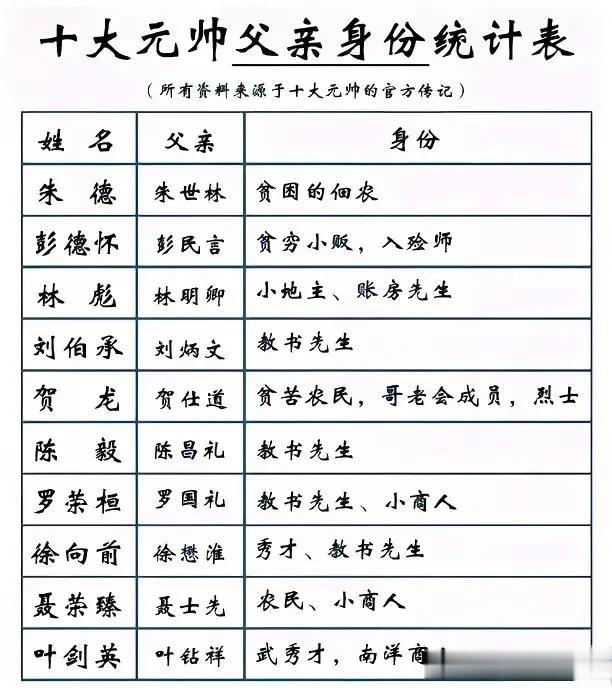 十大元帅父亲身份统计表
（所有资料来源于十大元帅的官方传记）
姓名 父亲 身份
朱德 朱世林 贫困的佃农
彭德怀 彭民言 贫穷小贩，入殓师
林彪 林明卿 小地主、账房先生
刘伯承 刘炳文 教书先生
贺龙 贺仕道 贫苦农民，哥老会成员，烈士
陈毅 陈昌礼 教书先生
罗荣桓 罗国礼 教书先生、小商人
徐向前 徐懋淮 秀才、教书先生
聂荣臻 聂士先 农民、小商人
叶剑英 叶钻祥 武秀才，南洋商